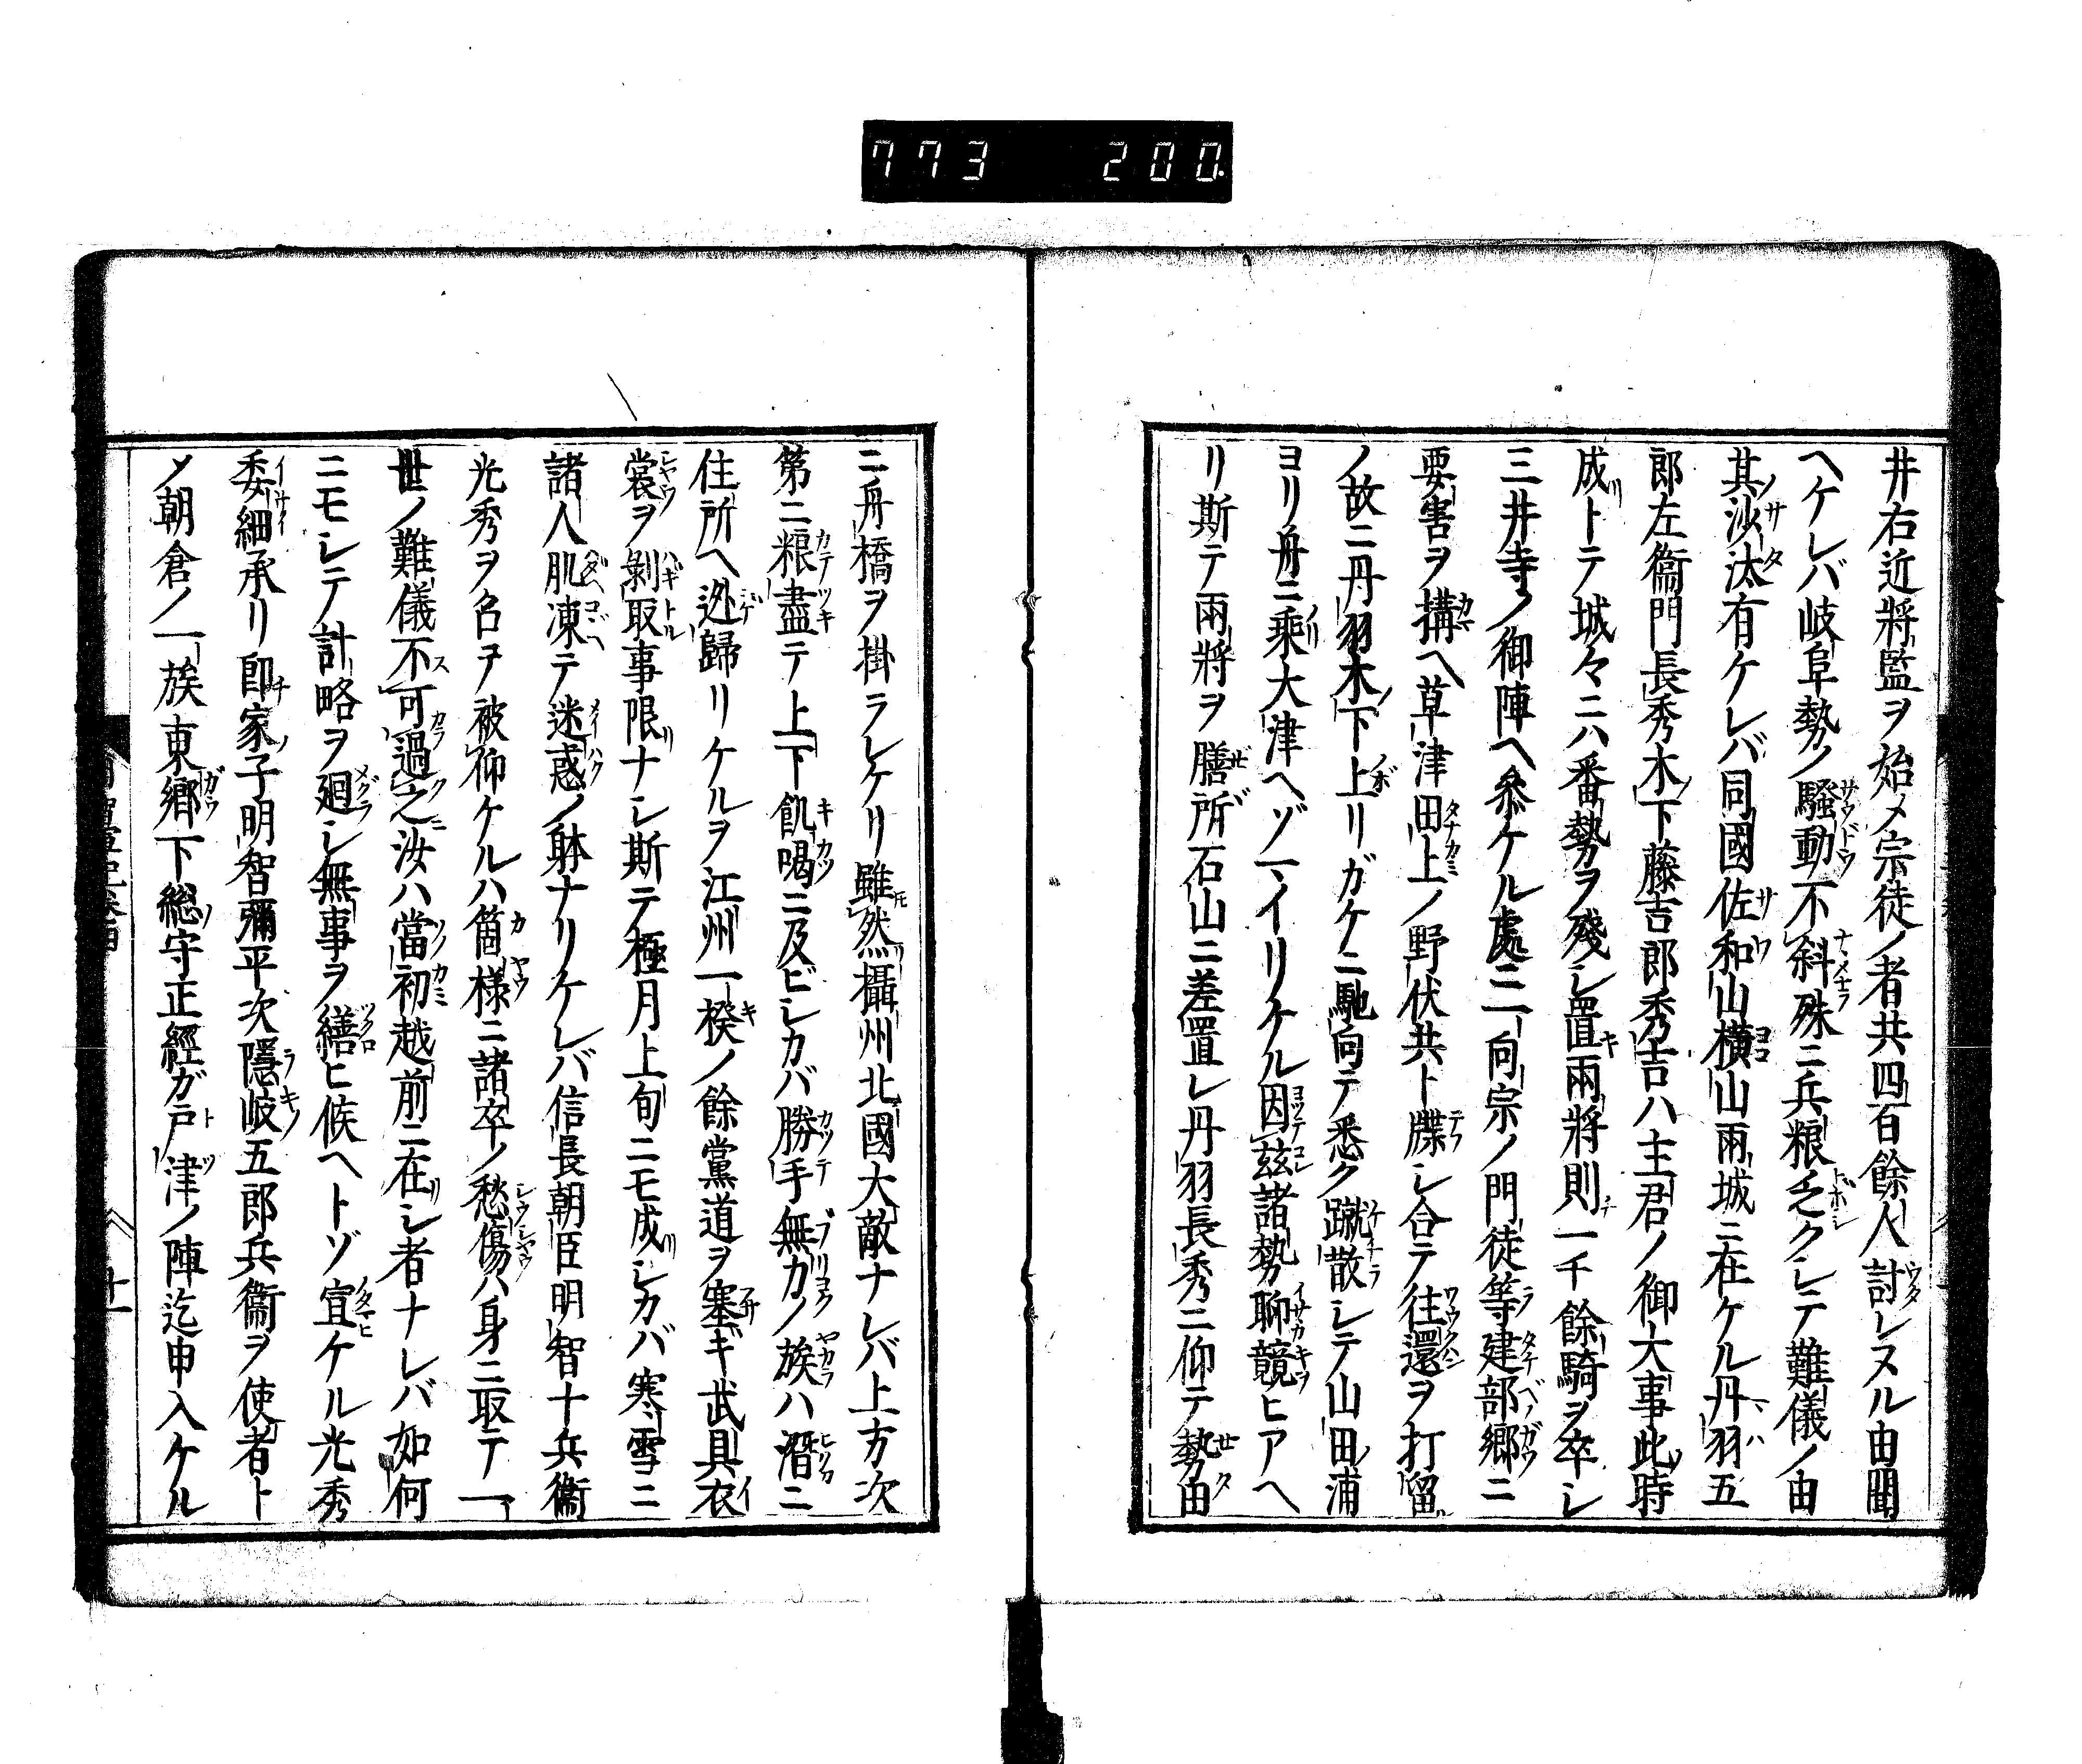 773 200
井右近將監ヲ始メ宗徒ノ者共四百餘人討レヌル由聞
ヘケレバ岐阜勢ノ騷動不斜殊ニ兵粮乏クシテ難儀ノ由
其沙汰有ケレバ同國佐和山横山兩城ニ在ケル丹羽五
郎左衞門長秀木下藤吉郎秀吉ハ主君ノ御大事此時
成トテ城々ニハ番勢ヲ殘シ置兩將則一千餘騎ヲ卒シ
三井寺ノ御陣ヘ參ケル處ニ一向宗ノ門徒等建部郷ニ
要害ヲ搆ヘ草津田上ノ野伏共ト牒シ合テ往還ヲ打留
ノ故ニ丹羽木下上リガケニ馳向テ悉ク蹴散シテ山田浦
ヨリ舟ニ乘大津ヘゾ一イリケル因茲諸勢聊競ヒアヘ
リ斯テ兩將ヲ膳所石山ニ差置レ丹羽長秀ニ仰テ勢由
ニ舟橋ヲ掛ラレケリ雖然攝州北國大敵ナレバ上方次
第ニ粮盡テ上下飢喝ニ及ビシカバ勝手無力ノ族ハ潛ニ
住所ヘ迯歸リケルヲ江州一揆ノ餘黨道ヲ塞ギ武具衣
裳ヲ剝取事限ナシ斯テ極月上旬ニモ成シカバ寒雪ニ
諸人肌凍テ迷惑ノ躰ナリケレバ信長朝臣明智十兵衞
光秀ヲ召ヲ被仰ケルハ箇樣ニ諸卒ノ愁傷ハ身ニ取テ一
世ノ難儀不可過之汝ハ當初越前ニ在シ者ナレバ如何
ニモシテ計略ヲ廻シ無事ヲ繕ヒ候ヘトゾ宣ケル光秀
委細承リ卽家子明智彌平次隱岐五郎兵衞ヲ使者ト
メ朝倉ノ一族東郷下総守正經ガ戸津ノ陣迄申入ケル
十一